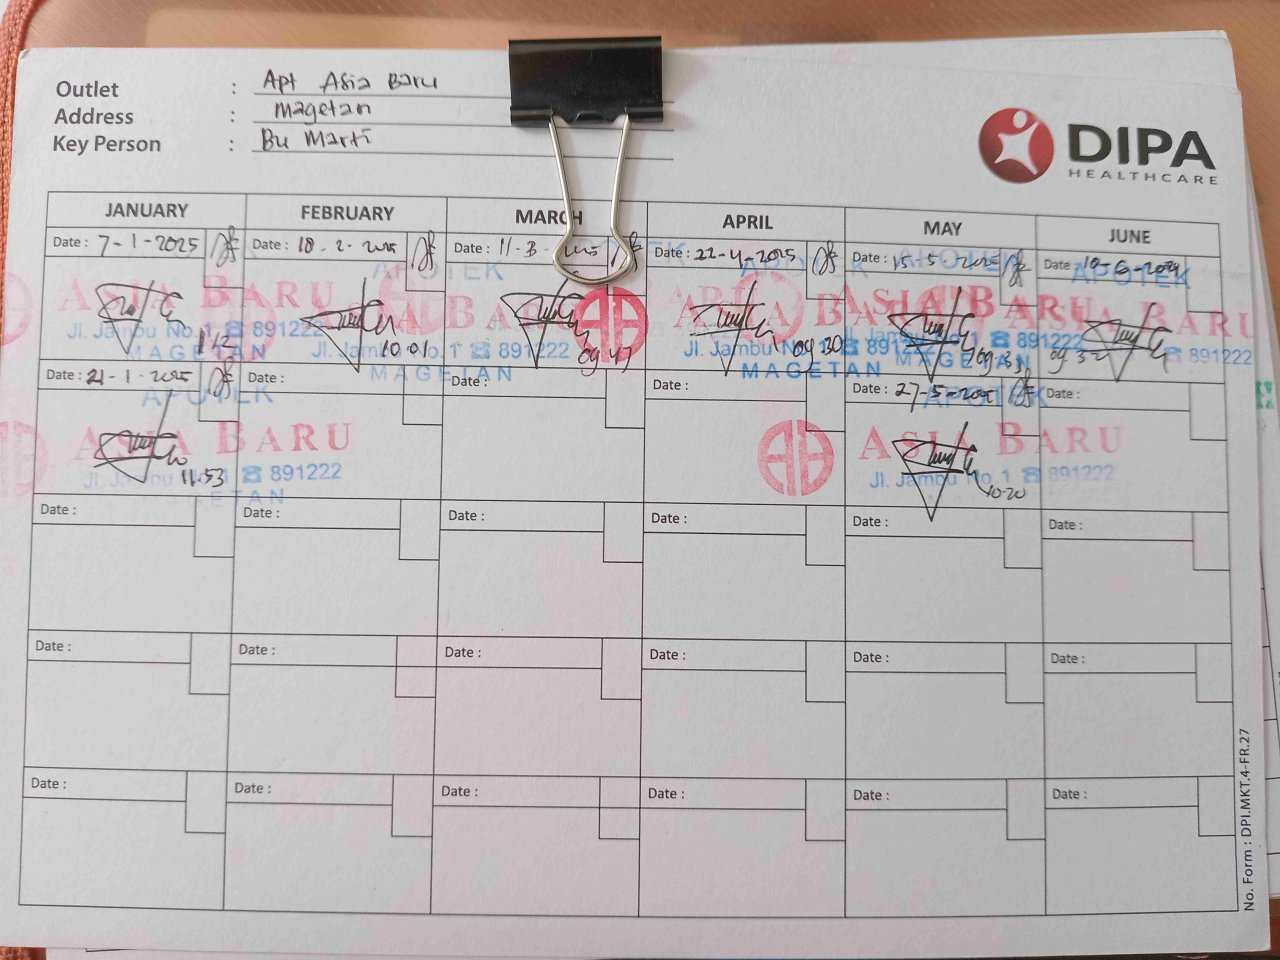 Outlet : Apt Asia Baru
Address : Magetan
Key Person : Bu Marti
DIPA
HEALTHCARE
JANUARY FEBRUARY MARCH APRIL MAY JUNE
Date : 7-1-2025 Date : 18-2-2025 Date : 11-3- Date : 22-4-2025 Date : 15-5-2025 Date :
APOTEK APOTEK APOTEK
ASIA BARU ASIA BARU ASIA BARU
Jl. Jambu No. 1 ☎ 891222 Jl. Jambu No. 1 ☎ 891222 Jl. Jambu No. 1 ☎ 891222 ☎ 891222
MAGETAN MAGETAN MAGETAN MAGETAN
10.01 09.47 09.30 09.32
Date : 21-1-2025 Date : Date : Date : Date : 27-5-2025 Date :
APOTEK APOTEK
ASIA BARU ASIA BARU
Jl. Jambu No. 1 ☎ 891222 Jl. Jambu No. 1 ☎ 891222
11.53 10.20
MAGETAN
Date : Date : Date : Date : Date : Date :
Date : Date : Date : Date : Date : Date :
Date : Date : Date : Date : Date : Date :
No. Form : DPI.MKT.4-FR.27